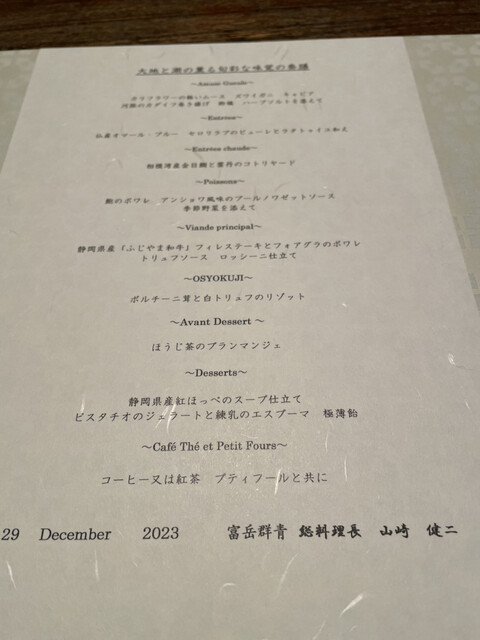 大地と潮の薫る旬彩な味覚の饗膳
～Amuse Gueule～
カリフラワーの軽いムース ズワイガニ キャビア
河豚のカダイフ巻き揚げ 酢橘 ハーブソルトを添えて
～Entrées～
仏産オマール・ブルー セロリラブのピューレとラタトゥイユ和え
～Entrées chaude～
相模湾産金目鯛と雲丹のコトリヤード
～Poissons～
鮑のポワレ アンショワ風味のブールノワゼットソース
季節野菜を添えて
～Viande principal～
静岡県産「ふじやま和牛」フィレステーキとフォアグラのポワレ
トリュフソース ロッシーニ仕立て
～OSYOKUJI～
ポルチーニ茸と白トリュフのリゾット
～Avant Dessert ～
ほうじ茶のブランマンジェ
～Desserts～
静岡県産紅ほっぺのスープ仕立て
ピスタチオのジェラートと練乳のエスプーマ 極薄飴
～Café Thé et Petit Fours～
コーヒー又は紅茶 プティフールと共に
29 December 2023 富岳群青 総料理長 山崎 健二